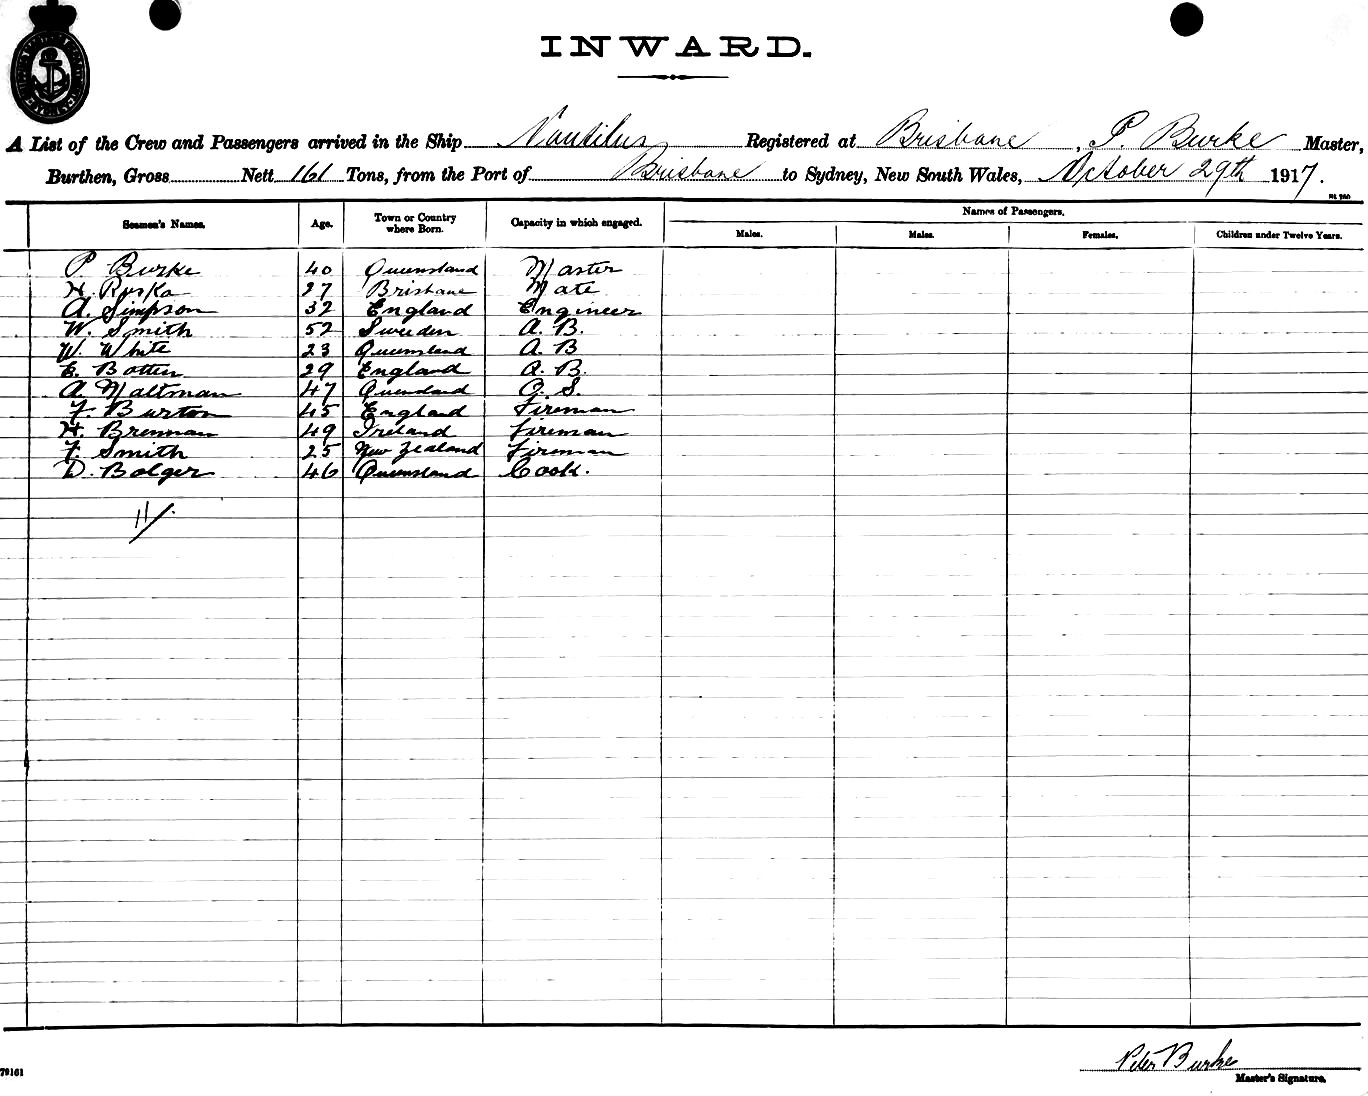 INWARD.
A List of the Crew and Passengers arrived in the Ship Nautilus Registered at Brisbane, P. Burke Master,
Burthen, Gross Nett 161 Tons, from the Port of Brisbane to Sydney, New South Wales, October 29th 1917.
Seamen's Names. Age. Town or Country where Born. Capacity in which engaged. Names of Passengers.
Males. Males. Females. Children under Twelve Years.
P Burke 40 Queensland Master
H. 27 Brisbane Mate
A. Simpson 32 England Engineer
W. Smith 52 Sweden A. B.
W. White 23 Queensland A. B
E. Botten 29 England A. B.
A. Maltman 47 Queensland O. S.
F. Burton 45 England Fireman
H. Brennan 49 Ireland Fireman
F. Smith 25 New Zealand Fireman
D. Bolger 46 Queensland Cook.
11/.
Peter Burke
Master's Signature.
79161